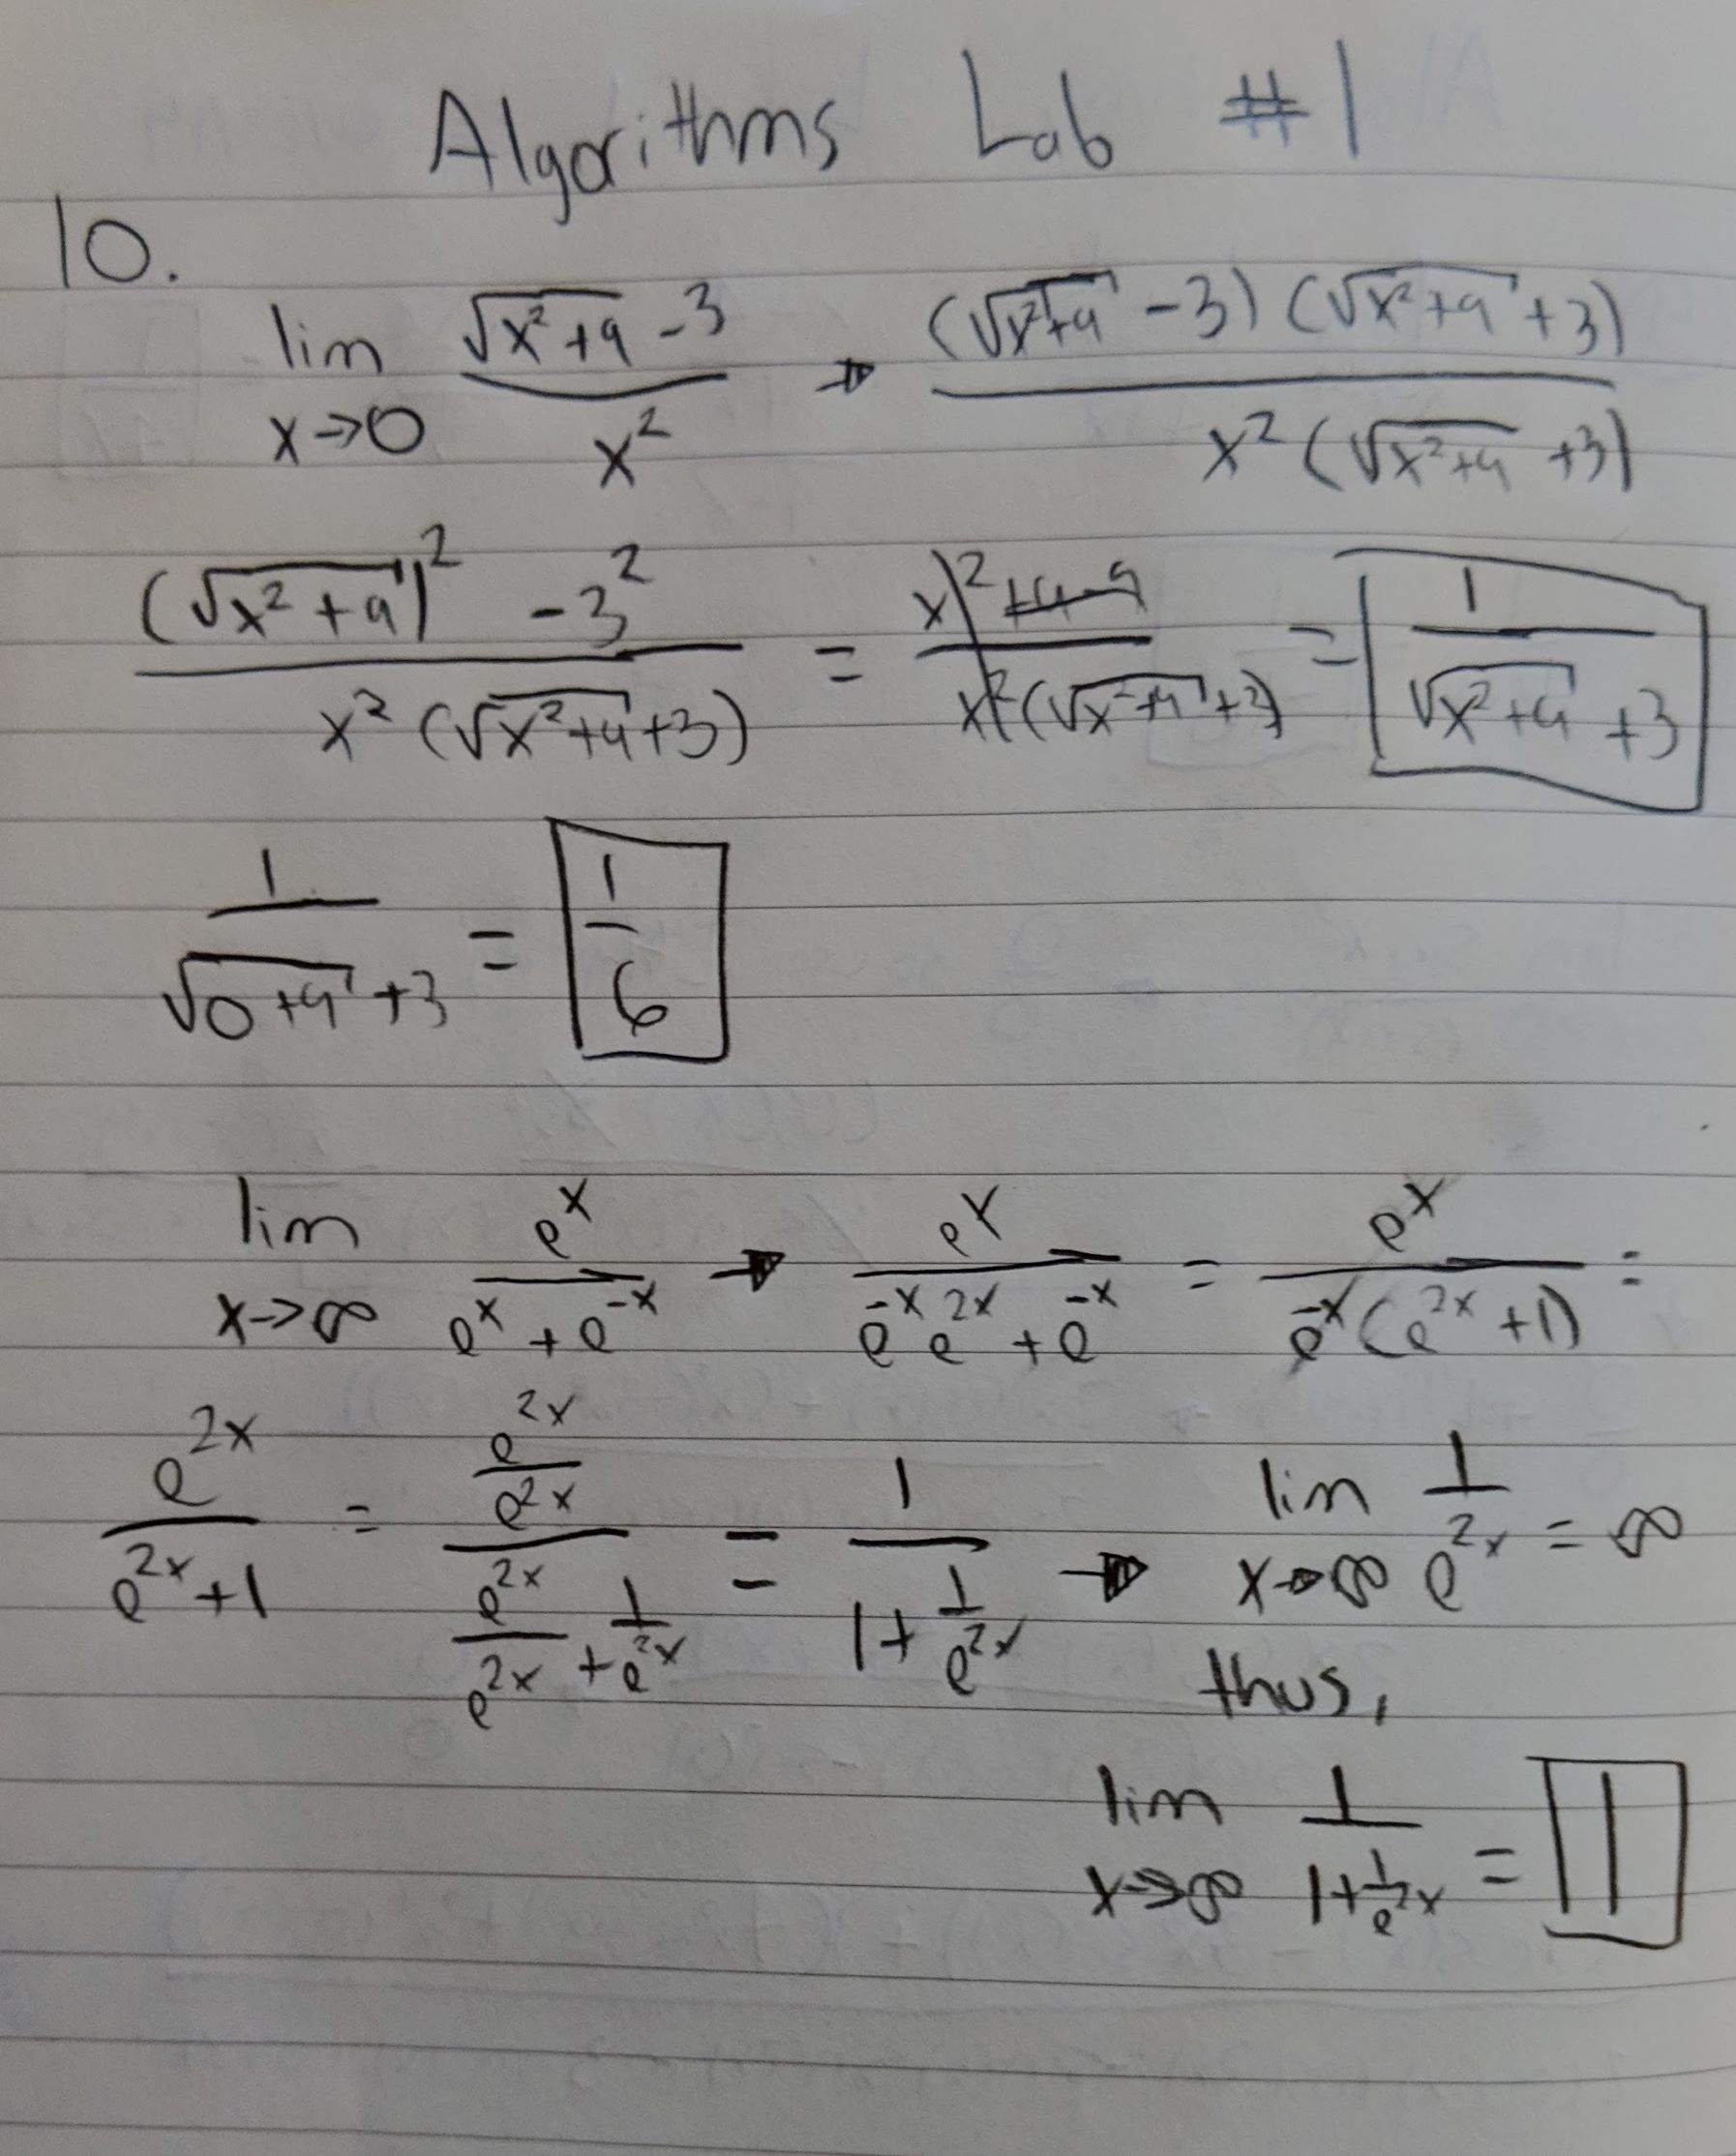 Algorithms Lab #1
10.
lim x→0 (√(x²+9) - 3)/x² → ((√(x²+9) - 3)(√(x²+9) + 3))/(x²(√(x²+9) + 3))
((√(x²+9))² - 3²)/(x²(√(x²+9)+3)) = (x²+9-9)/(x²(√(x²+9)+3)) = 1/(√(x²+9) + 3)
1/(√(0+9) + 3) = 1/6
lim x→∞ e^x/(e^x + e^-x) → e^x/(e^-x e^2x + e^-x) = e^x/(e^-x(e^2x + 1)) =
e^2x/(e^2x + 1) = (e^2x/e^2x)/(e^2x/e^2x + 1/e^2x) = 1/(1 + 1/e^2x) → lim x→∞ 1/e^2x = ∞
thus,
lim x→∞ 1/(1 + 1/e^2x) = 1